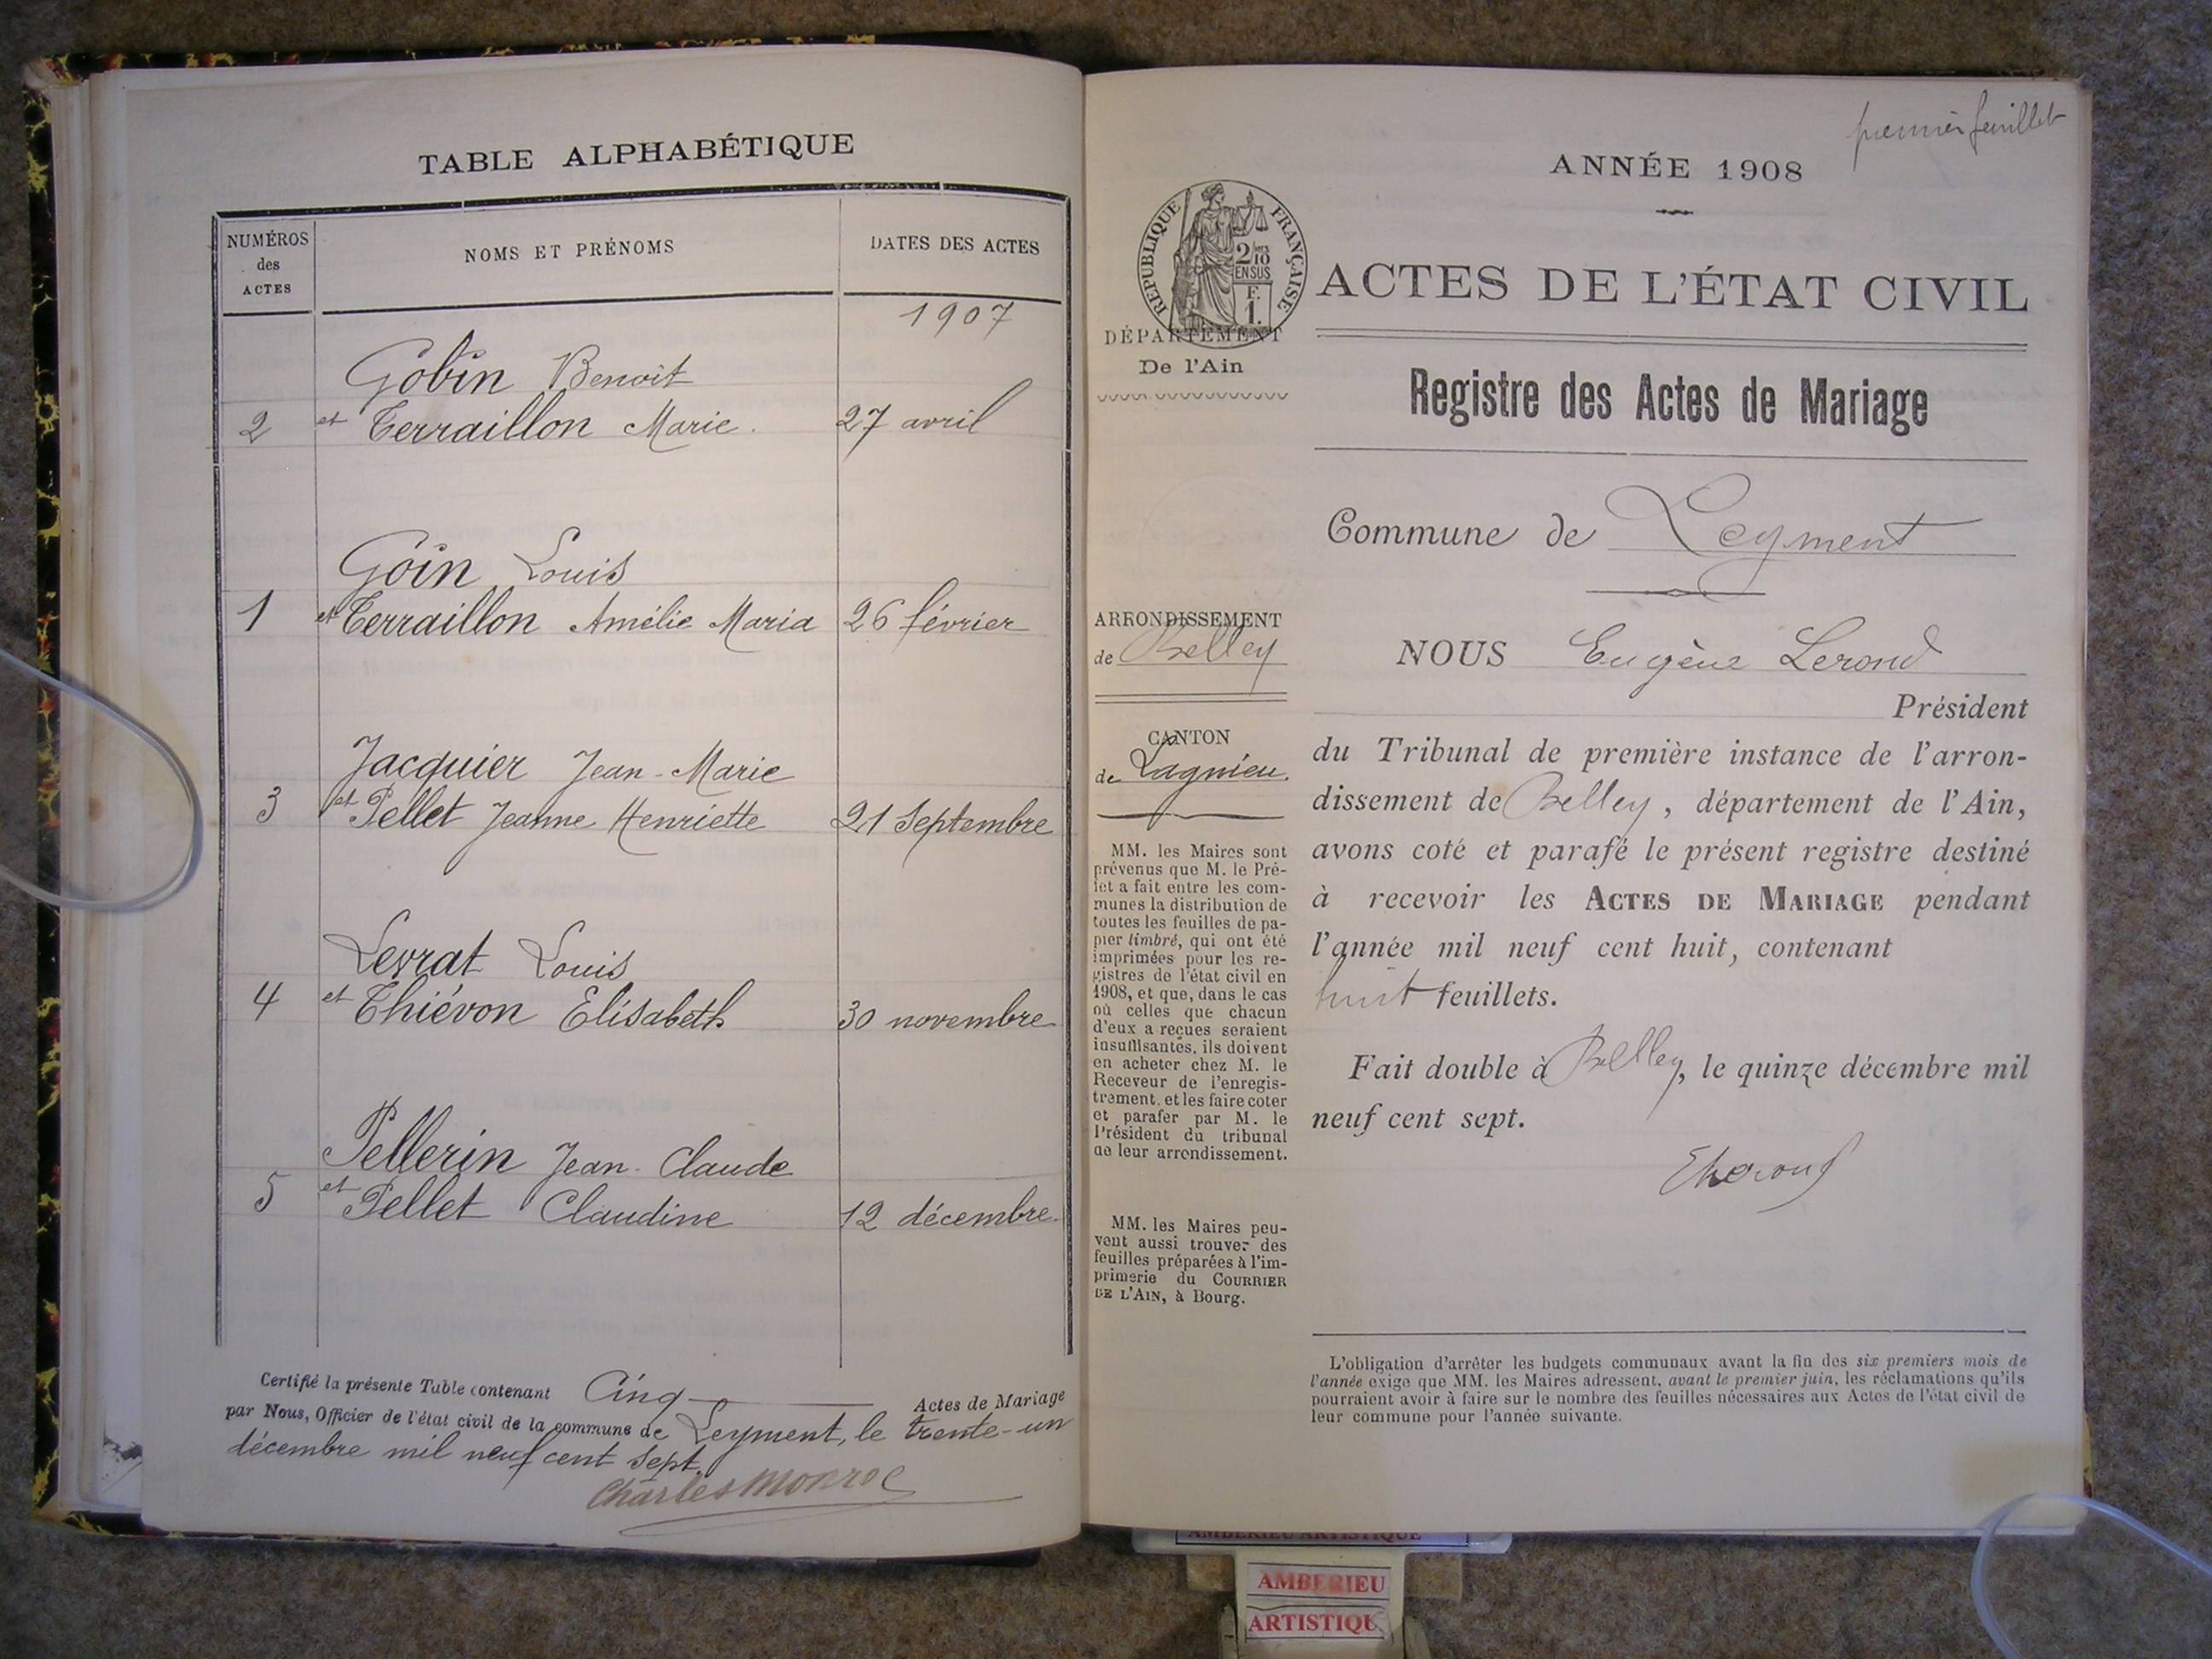 TABLE ALPHABÉTIQUE
NUMÉROS
des
ACTES
NOMS ET PRÉNOMS
DATES DES ACTES
1907
Gobin Benoit
2 et Terraillon Marie. 27 avril
Goin Louis
1 et Terraillon Amélie Maria 26 février
Jacquier Jean-Marie
3 et Pellet Jeanne Henriette 21 Septembre
Levrat Louis
4 et Thiévon Elisabeth 30 novembre
Pellerin Jean-Claude
5 et Pellet Claudine 12 décembre.
Certifié la présente Table contenant Cinq Actes de Mariage
par Nous, Officier de l'état civil de la commune de Leyment, le trente-un
décembre mil neuf cent Sept.
Charles Monroe
premier feuillet
ANNÉE 1908
REPUBLIQUE FRANÇAISE
2/10
EN SUS
F.
1.
ACTES DE L'ÉTAT CIVIL
DÉPARTEMENT
De l'Ain
Registre des Actes de Mariage
Commune de Leyment
ARRONDISSEMENT
de Belley
CANTON
de Lagnieu.
MM. les Maires sont
prévenus que M. le Pré-
fet a fait entre les com-
munes la distribution de
toutes les feuilles de pa-
pier timbré, qui ont été
imprimées pour les re-
gistres de l'état civil en
1908, et que, dans le cas
où celles que chacun
d'eux a reçues seraient
insuffisantes, ils doivent
en acheter chez M. le
Receveur de l'enregis-
trement, et les faire coter
et parafer par M. le
Président du tribunal
de leur arrondissement.
MM. les Maires peu-
vent aussi trouver des
feuilles préparées à l'im-
primerie du COURRIER
DE L'AIN, à Bourg.
NOUS Eugène Lerond
Président
du Tribunal de première instance de l'arron-
dissement de Belley, département de l'Ain,
avons coté et parafé le présent registre destiné
à recevoir les ACTES DE MARIAGE pendant
l'année mil neuf cent huit, contenant
huit feuillets.
Fait double à Belley, le quinze décembre mil
neuf cent sept.
ELerond
L'obligation d'arrêter les budgets communaux avant la fin des six premiers mois de
l'année exige que MM. les Maires adressent, avant le premier juin, les réclamations qu'ils
pourraient avoir à faire sur le nombre des feuilles nécessaires aux Actes de l'état civil de
leur commune pour l'année suivante.
AMBERIEU ARTISTIQUE
AMBERIEU
ARTISTIQUE